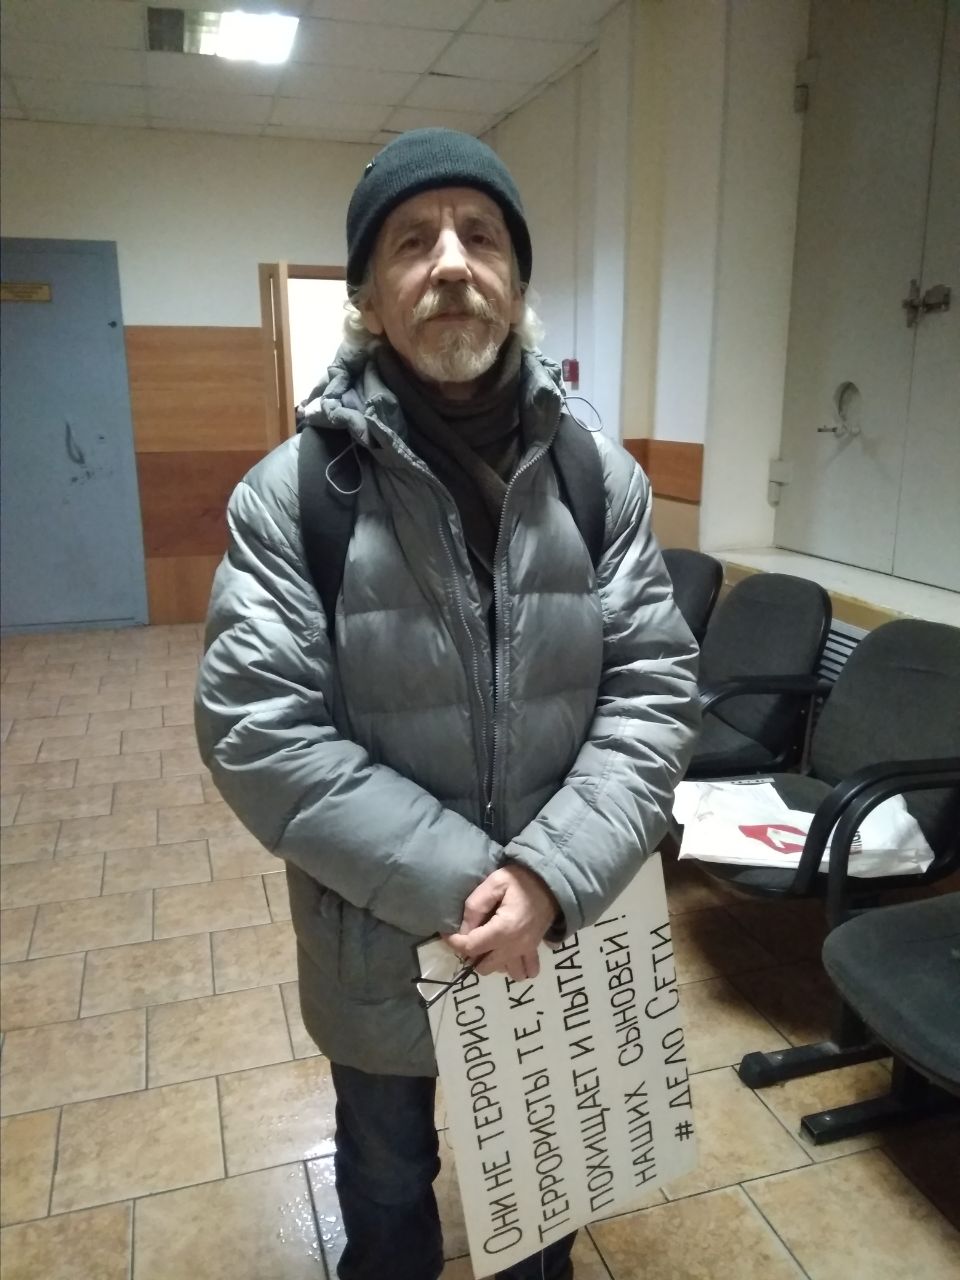 Они не террористы
Террористы те, кт
похищает и пытае
наших сыновей!
# дело Сети